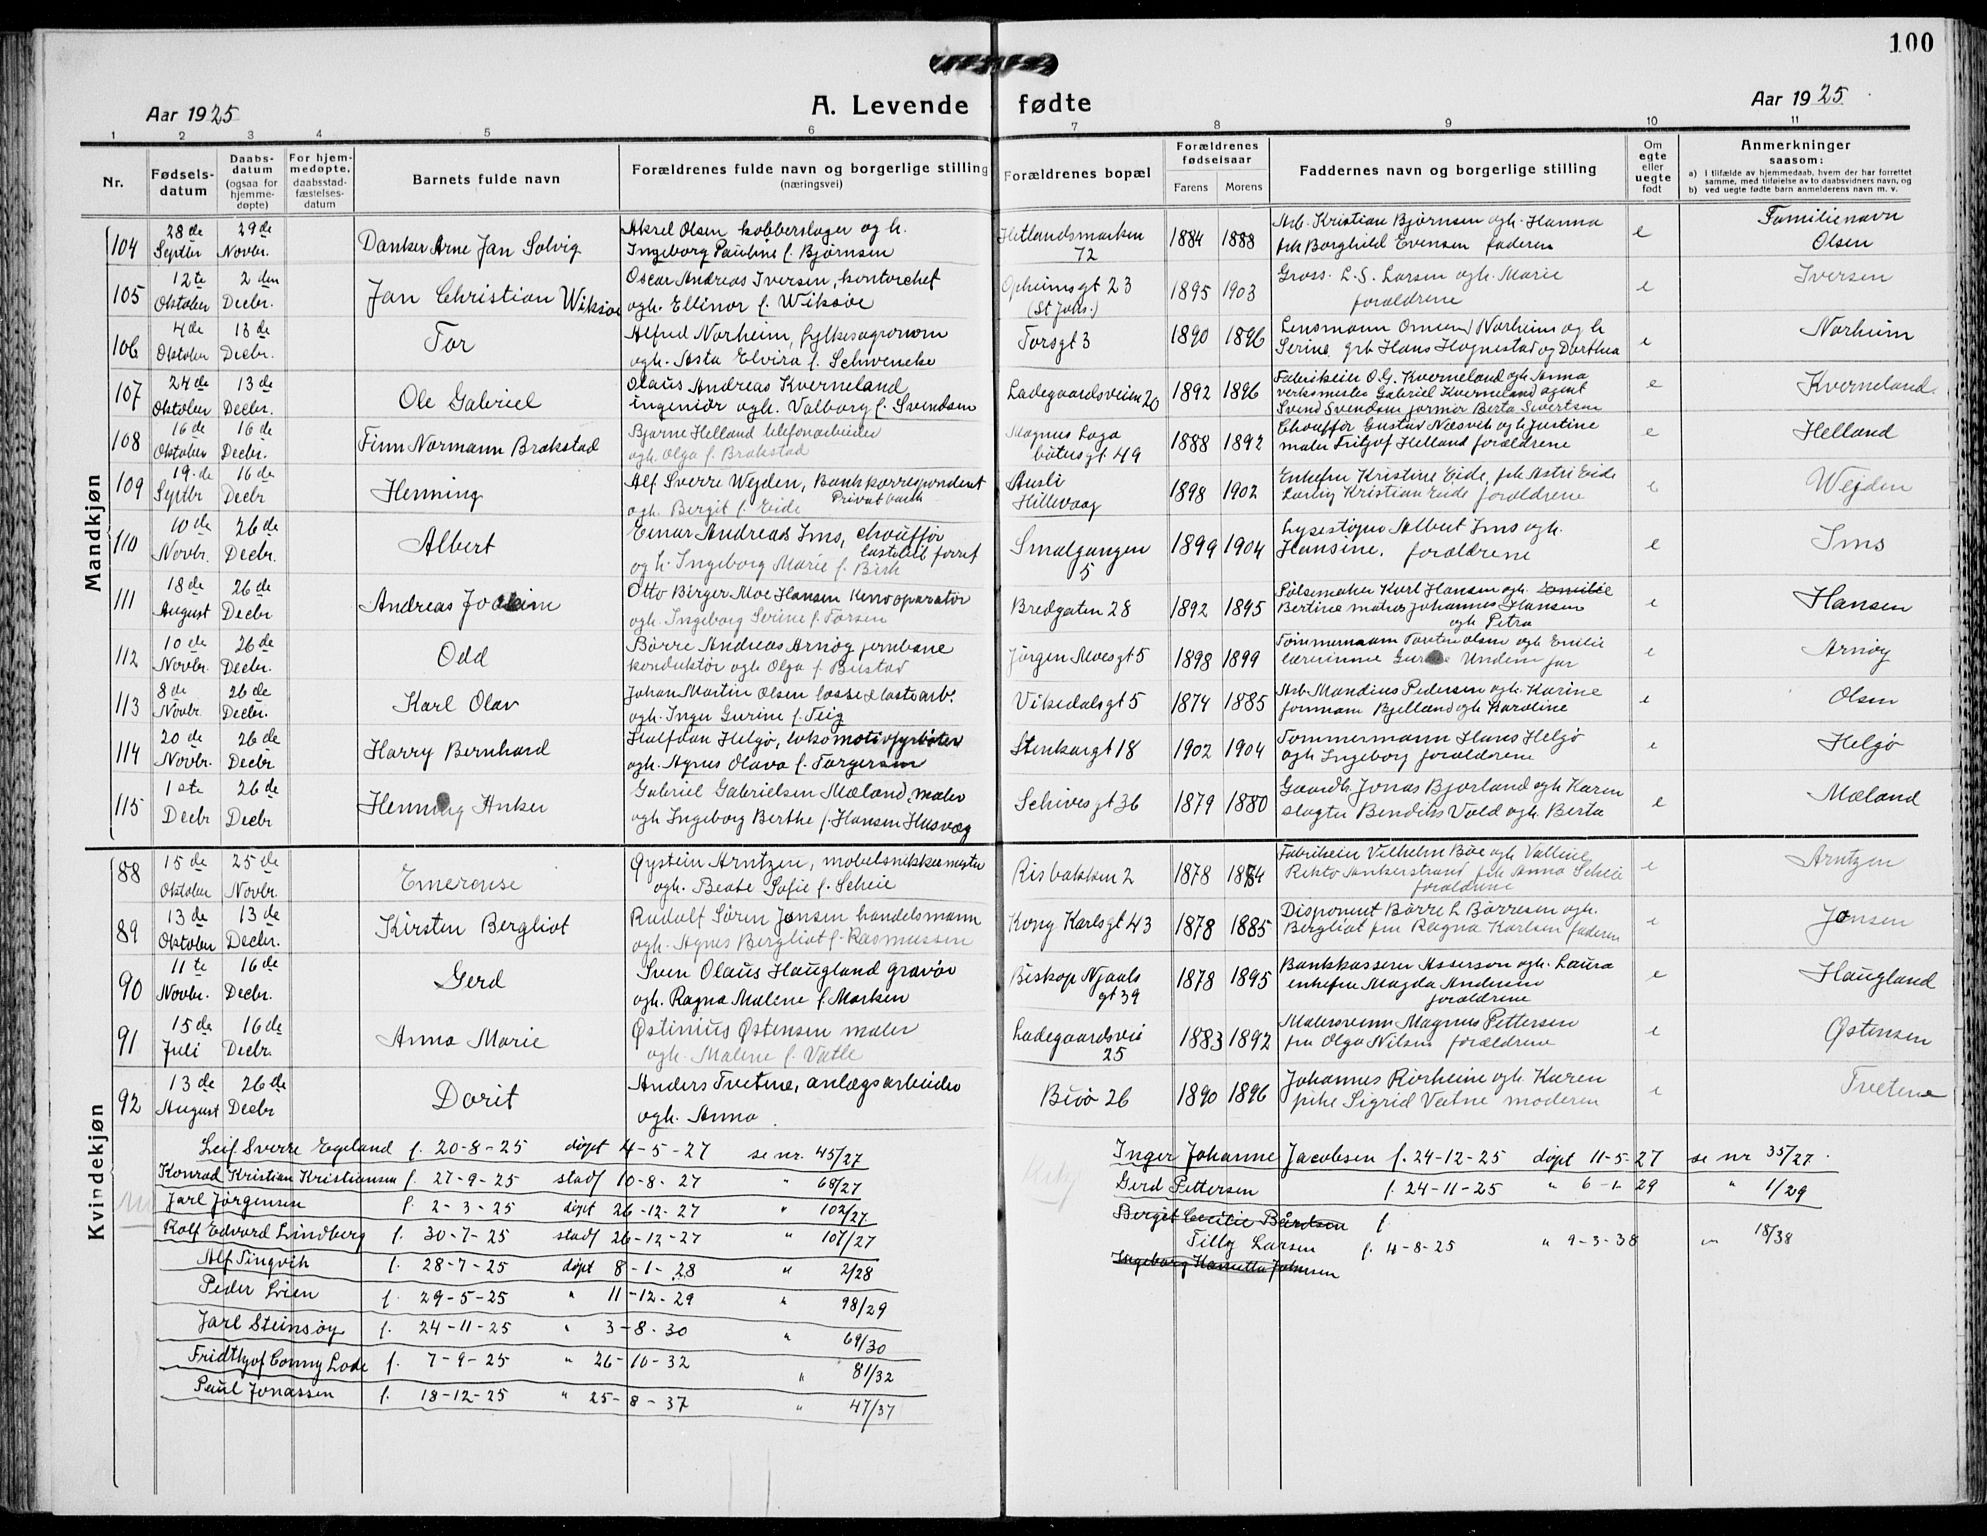 100
Aar 1925
A. Levende fødte
Aar 1925
1 2 3 4 5 6 7 8 9 10 11
Nr.
Fødsels-
datum
Daabs-
datum
(ogsaa for
hjemme-
døpte)
For hjem-
medøpte.
daabsstad-
fæstelses-
datum
Barnets fulde navn
Forældrenes fulde navn og borgerlige stilling
(næringsvei)
Forældrenes bopæl
Forældrenes
fødselsaar
Farens Morens
Faddernes navn og borgerlige stilling
Om
egte
eller
uegte
født
Anmerkninger
saasom:
a) I tilfælde av hjemmedaab, hvem der har forrettet
samme, med tilføielse av to daabsvidners navn, og
b) ved uegte fødte barn anmelderens navn m. v.
Mandkjøn
104 28de Septbr 29de Novbr. Danker Arne Jan Solvig
Aksel Olsen kobberslager og h.
Ingeborg Pauline f. Bjørnsen
Hetlandsmarken
72
1884 1888
Arb. Kristian Bjørnsen ogh. Hanna
frk Borghild Evensen faderen
e
Familienavn
Olsen
105 12te Oktober 2den Decbr. Jan Christian Wiksøe
Oscar Andreas Iversen, kontorchef
ogh. Ellinor f. Wiksøe
Opheimsgt 23
(St Johs.)
1895 1903
Gross. L. S. Larsen ogh. Marie
forældrene
e Iversen
106 4de Oktober 13de Decbr. Tor
Alfred Norheim, fylkesagronom
ogh. Asta Elvira f. Schwencke
Torsgt 3
1890 1896
Lensmann Omund Norheim og h
Serine, grb Hans Hognestad og Dorthea
e Norheim
107 24de Oktober 13de Decbr. Ole Gabriel
Olaus Andreas Kverneland
ingeniør ogh. Valborg f. Svendsen
Ladegaardsveien 20
1892 1896
Fabrikeier O. G. Kverneland ogh Anna
verksmester Gabriel Kverneland agent
Svend Svendsen jormor Berta Sivertsen
e Kverneland.
108 16de Oktober 16de Decbr. Finn Normann Brakstad
Bjarne Helland telefonarbeider
ogh. Olga f. Brakstad
Magnus Laga
bøtersgt 49
1888 1892
Chouffør Gustav Næsvik ogh Justine
maler Fritjof Helland forældrene
e Helland
109 19.de Septbr 16de Decbr Henning
Alf Sverre Wejden, Bankkorrespondent
Privatbank
ogh. Bergit f. Eide
Ausli
Hillevaag
1898 1902
Enkefru Kristine Eide, frk Astri Eide
Lærling Kristian Eide forældrene
e Wejden
110 10de Novbr. 26de Decbr. Albert
Einar Andreas Ims, chouffør
lastebil forret
og h. Ingeborg Marie f. Birk
Smalgangen
5
1899 1904
Lysestøper Albert Ims ogh.
Hansine, forældrene
e Ims
111 18de August 26de Decbr. Andreas Joakim
Otto Birger Moe Hansen Kinooparatør
ogh. Ingeborg Serine f. Torsen
Bredgaten 28
1892 1895
Pølsemaker Karl Hansen ogh. Emilie
Bertine matros Johannes Hansen
ogh Petra
e Hansen
112 10de Novbr. 26de Decbr. Odd
Børre Andreas Arnøy jernbane
konduktør ogh Olga f. Bustad
Jørgen Moes gt 5
1898 1899
Tømmermann Torsten Olsen ogh Emilie
lærerinne Undem far
e Arnøy
113 8de Novbr 26de Decbr. Karl Olav
Johan Martin Olsen losse & lastearb.
ogh. Inger Gurine f. Teig
Vikedalsgt 5
1874 1885
Arb Mandius Pedersen ogh. Karine
formann Bjelland ogh Karoline
e Olsen
114 20de Novbr. 26de Decbr. Harry Bernhard
Halfdan Helgø, lokomotivfyrbøter
ogh. Agnes Olava f. Torgersen
Stenkargt 18
1902 1904
Tømmermann Hans Helgø
ogh Ingeborg forældrene
e Helgø
115 1ste Decbr 26de Decbr Henning Anker
Gabriel Gabrielsen Mæland, maler
ogh Ingeborg Berthe f. Hansen Husvæg
Schives gt 36
1879 1880
Gaardb. Jonas Bjorland ogh Karen
slagter Bendiks Vold ogh. Berta
e Mæland
Kvindekjøn
88 15de Oktober 25de Novbr. Emerense
Øystein Arntzen, møbelsnikkermester
ogh. Beate Sofie f. Scheie
Risbakken 2
1878 1884
Fabrikeier Vilhelm Bøe ogh Valline
Rikto Ankerstrand frk Anna Scheie
forældrene
e Arntzen
89 13de Oktober 13de Decbr. Kirsten Bergliot
Rudolf Søren Jonsen handelsmann
ogh. Agnes Bergliot f. Rasmussen
Kong Karlsgt 43
1878 1885
Disponent Børre L Børresen ogh.
Bergliot fru Ragna Karlsen faderen
e Jonsen
90 11te Novbr. 16de Decbr. Gerd
Sven Olaus Haugland gravør
ogh. Ragna Malene f. Marken
Biskop Njaals
gt 39
1878 1895
Bankkasserer Asserson ogh. Laura
enkefru Magda Andersen
forældrene
e Haugland
91 15de Juli 16de Decbr. Anna Marie
Østinius Østensen maler
ogh. Malene f. Vatle
Ladegaardsvei
25
1883 1892
Malersvenn Magnus Pettersen
fru Olga Nilsen forældrene
e Østensen
92 13de August 26de Decbr Dorit
Anders Tvetene, anlægsarbeider
ogh. Anna.
Buø 26
1890 1896
Johannes Rorheim ogh. Karen
pike Sigrid Vatne moderen
e Tvetene
Leif Sverre Egeland f. 20-8-25 døpt 4-5-27 se nr. 45/27
Konrad Kristian Kristiansen f. 27-9-25 stadf 10-8-27 " 68/27
Jarl Jørgensen f. 2-3-25 døpt 26-12-27 " 102/27
Rolf Edvard Lindberg f. 30-7-25 stadf 26-12-27 " 107/27
Alf Tingvik f. 28-7-25 døpt 8-1-28 " 2/28
Peder Lien f. 29-5-25 " 11-12-29 " 98/29
Jarl Steinsøy f. 24-11-25 " 3-8-30 " 69/30
Fridthjof Conny Lode f. 7-9-25 " 26-10-32 " 81/32
Paul Jonassen f. 18-12-25 " 25-8-37 " 47/37
Inger Johanne Jacobsen f. 24-12-25 døpt 11-5-27 se nr 35/27
Gerd Pettersen f. 24-11-25 " 6-1-29 " 1/29
Bergit Cecilie Bårdsen f.
Tilly Larsen f. 4-8-25 " 9-3-38 " 18/38
Ingeborg Henrietta Johnsen